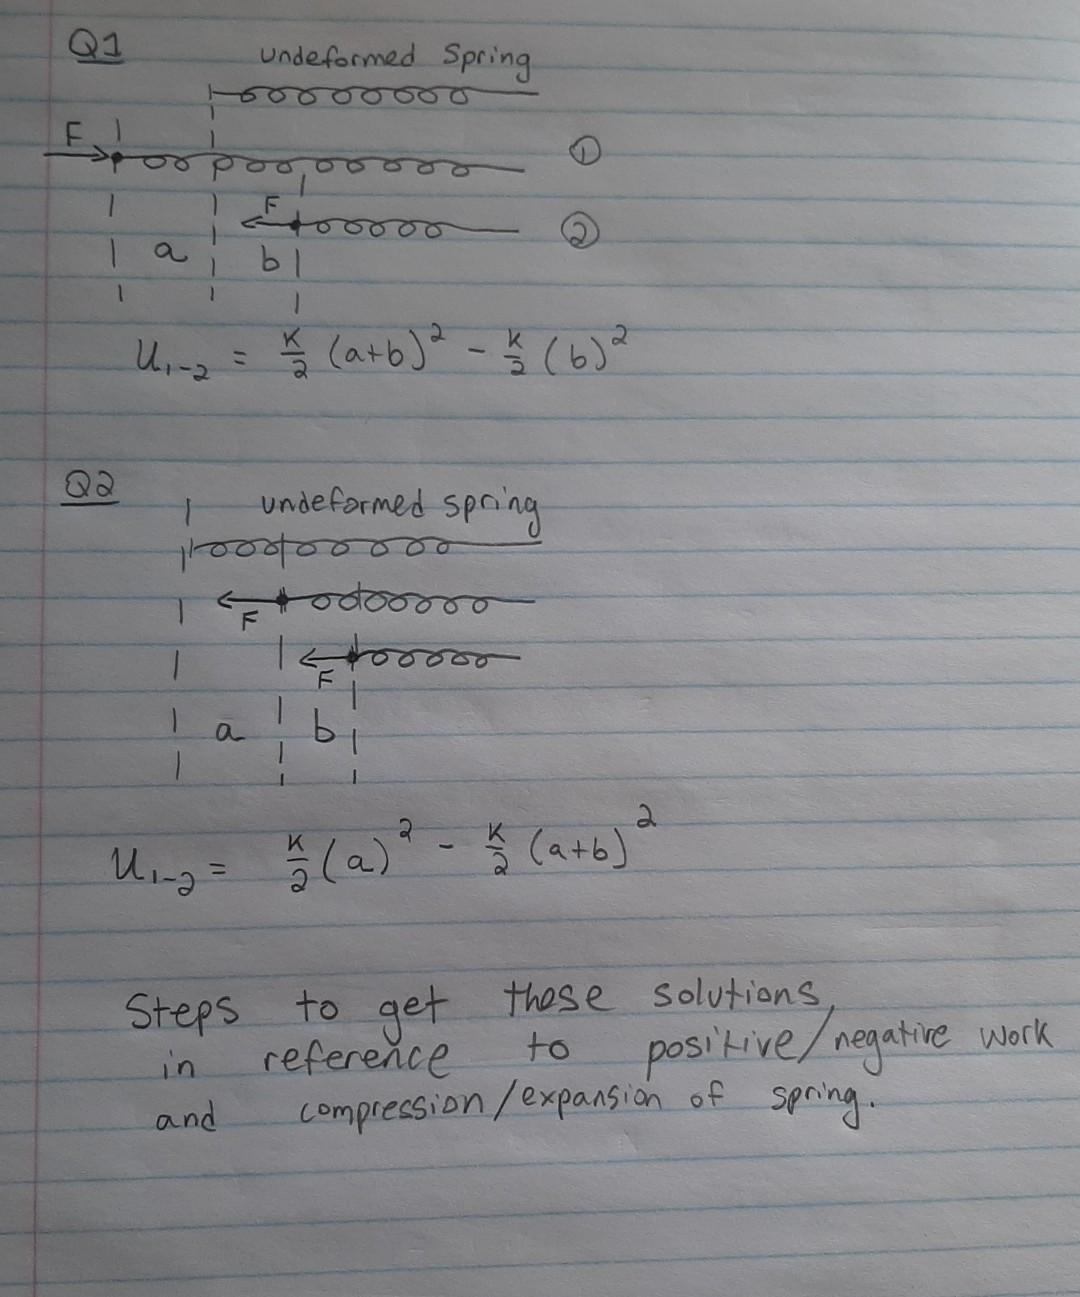 Q1
undeformed Spring
F
①
F
②
a b
U₁₋₂ = K/2 (a+b)² - K/2 (b)²
Q2
undeformed spring
F
F
a b
U₁₋₂ = K/2 (a)² - K/2 (a+b)²
Steps to get those solutions,
in reference to positive/negative work
and compression/expansion of spring.